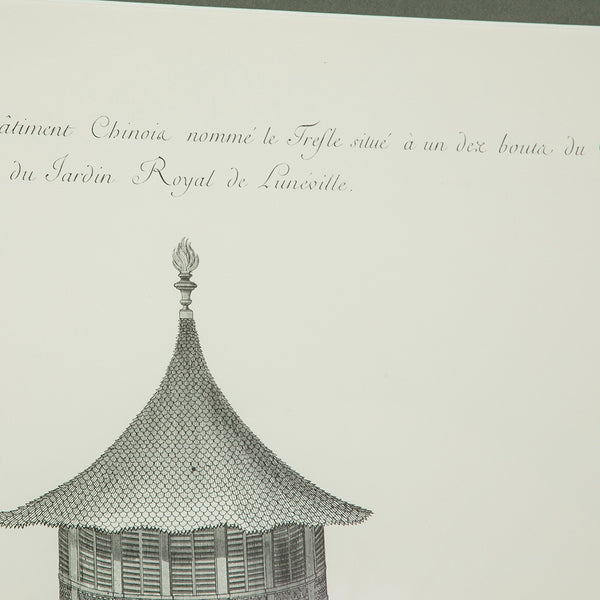 âtiment Chinois nommé le Trefle situé à un des bouts du
du Jardin Royal de Lunéville.